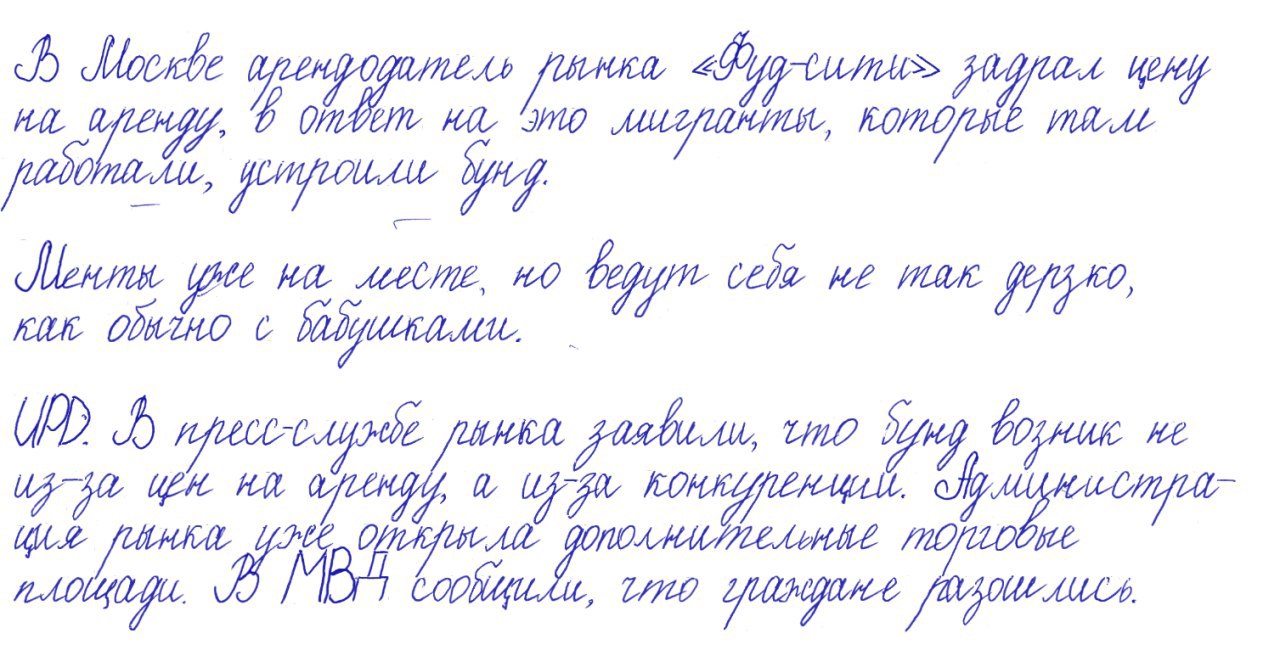 В Москве арендодатель рынка «Фуд-сити» задрал цену
на аренду, в ответ на это мигранты, которые там
работали, устроили бунд.
Менты уже на месте, но ведут себя не так дерзко,
как обычно с бабушками.
UPD. В пресс-службе рынка заявили, что бунд возник не
из-за цен на аренду, а из-за конкуренции. Администра-
ция рынка уже открыла дополнительные торговые
площади. В МВД сообщили, что граждане разошлись.